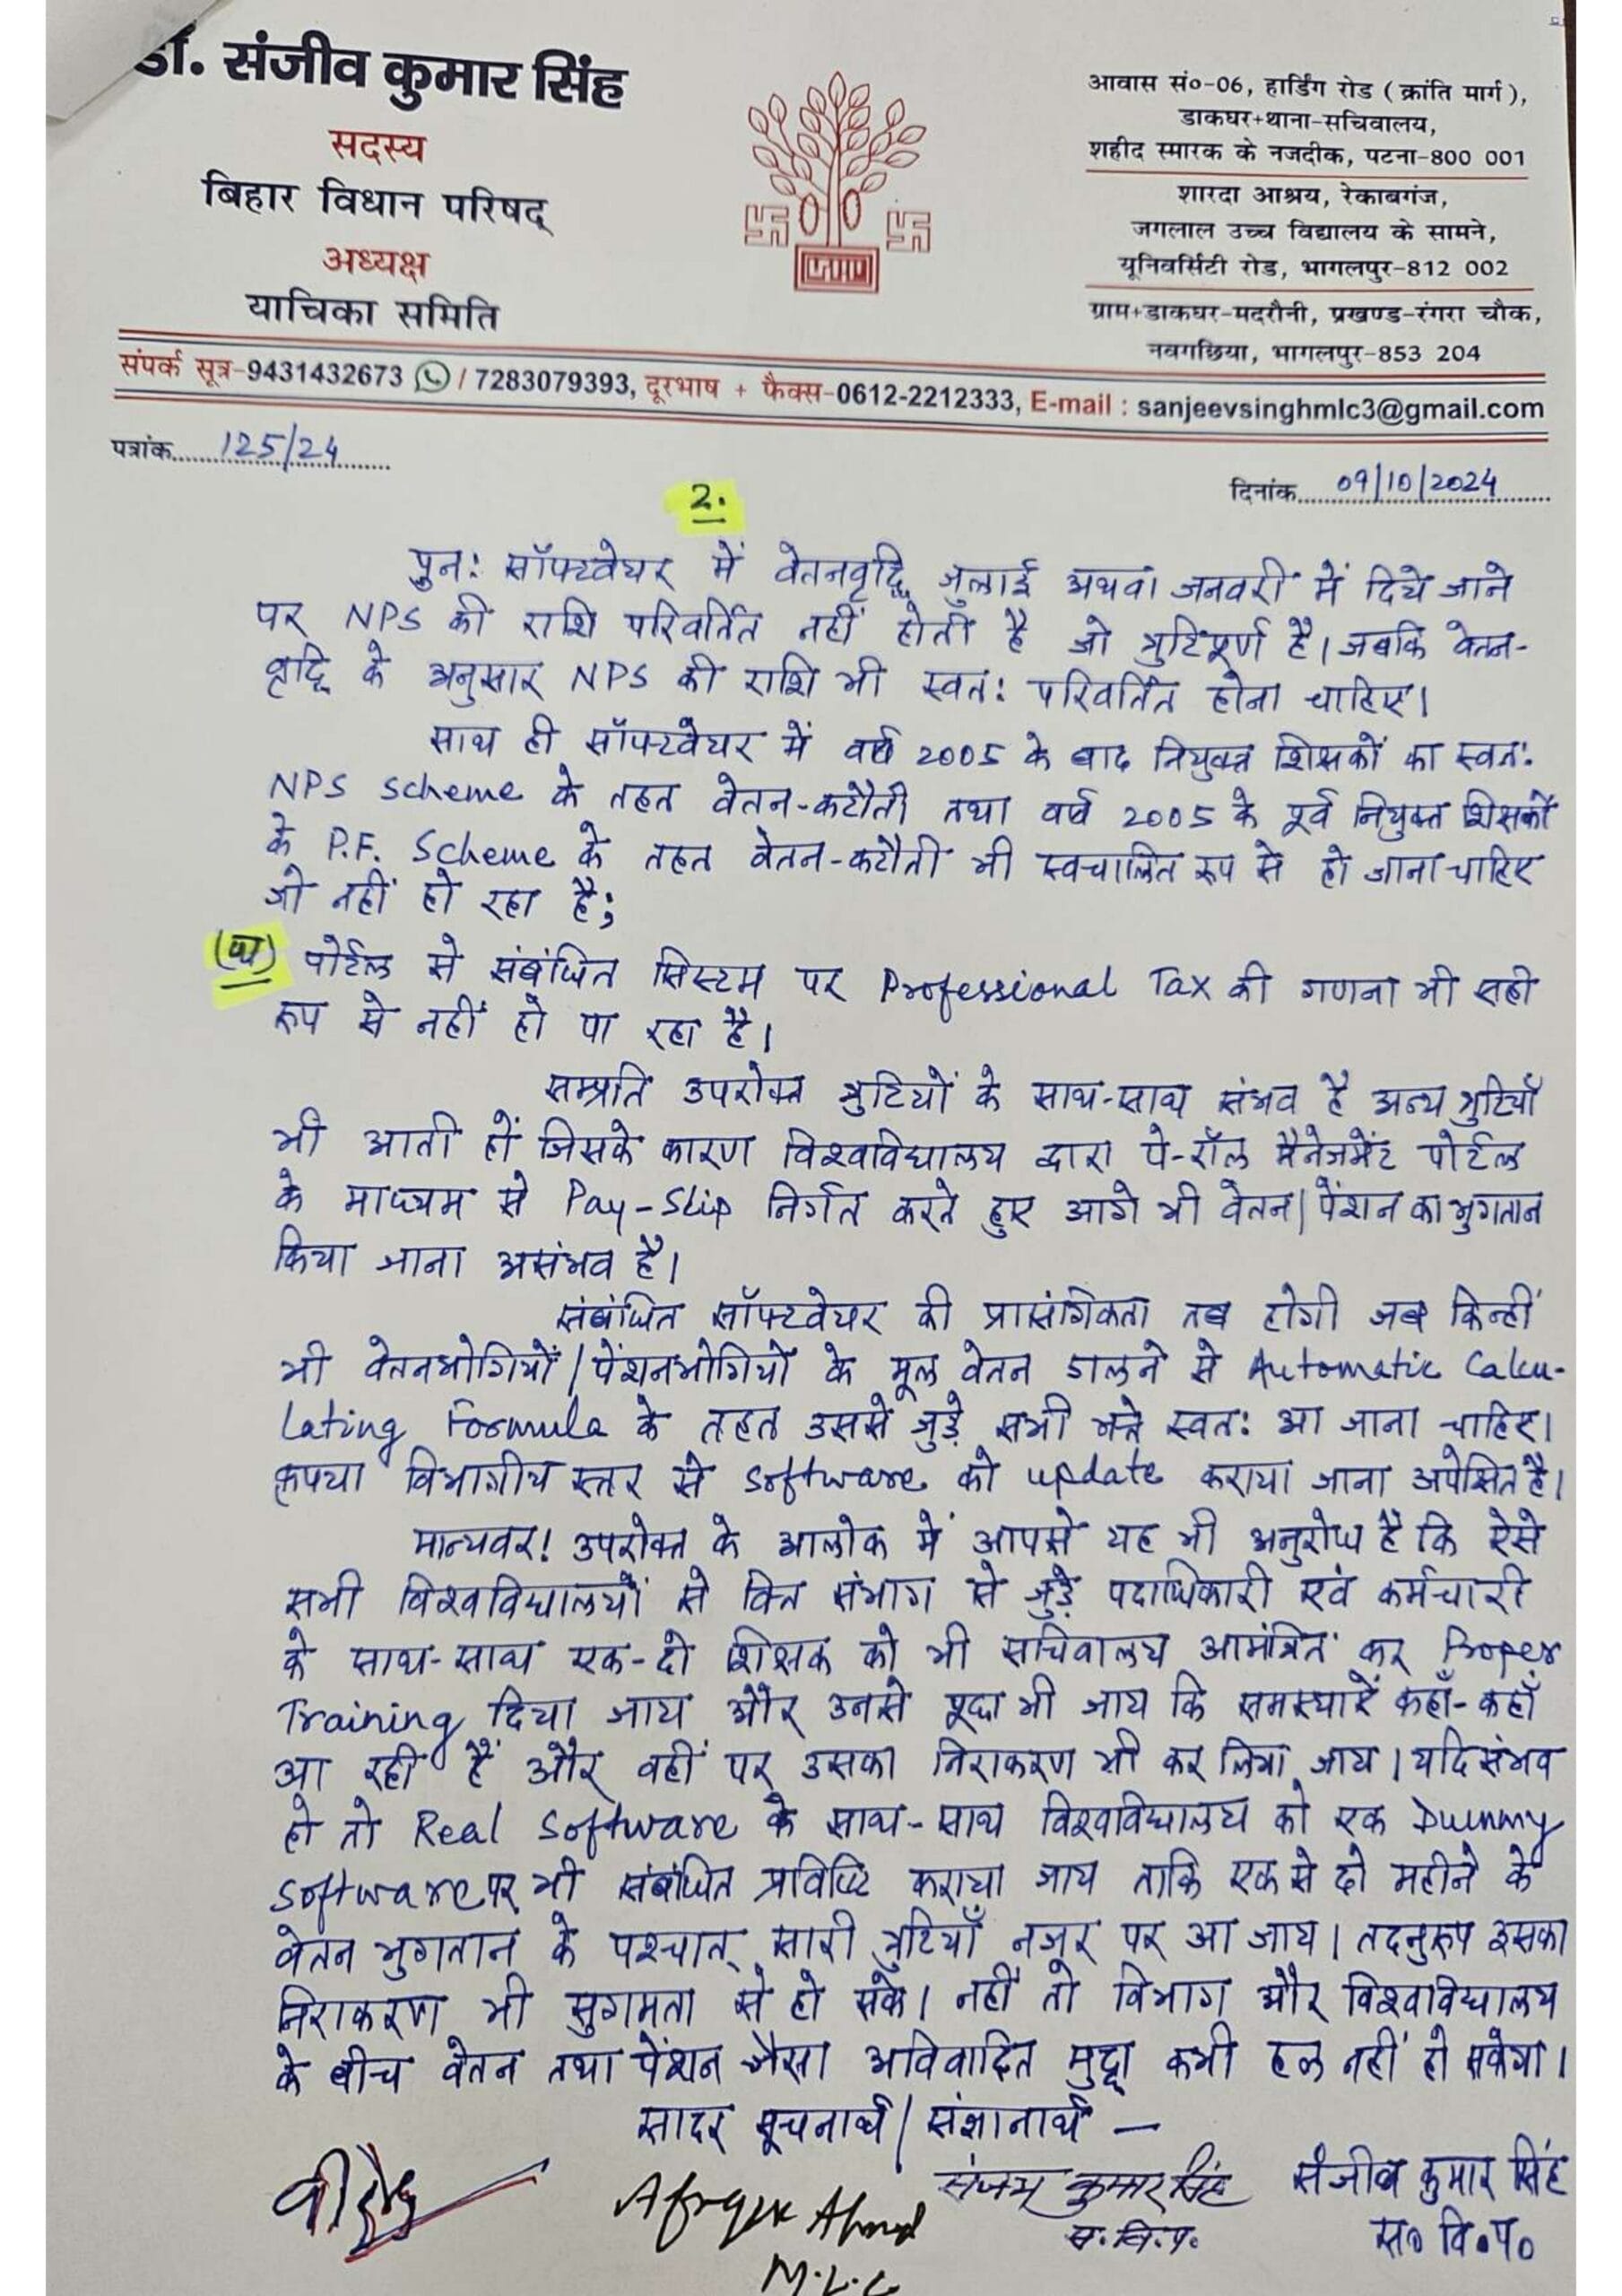 डॉ. संजीव कुमार सिंह
सदस्य
बिहार विधान परिषद्
अध्यक्ष
याचिका समिति
आवास सं०-06, हार्डिंग रोड (क्रांति मार्ग),
डाकघर+थाना-सचिवालय,
शहीद स्मारक के नजदीक, पटना-800 001
शारदा आश्रय, रेकाबगंज,
जगलाल उच्च विद्यालय के सामने,
यूनिवर्सिटी रोड, भागलपुर-812 002
ग्राम+डाकघर-मदरौनी, प्रखण्ड-रंगरा चौक,
नवगछिया, भागलपुर-853 204
संपर्क सूत्र-9431432673 / 7283079393, दूरभाष + फैक्स-0612-2212333, E-mail : sanjeevsinghmlc3@gmail.com
पत्रांक 125/24
दिनांक 09/10/2024
2.
पुन: सॉफ्टवेयर में वेतनवृद्धि जुलाई अथवा जनवरी में दिये जाने
पर NPS की राशि परिवर्तित नहीं होती है जो त्रुटिपूर्ण है। जबकि वेतन-
वृद्धि के अनुसार NPS की राशि भी स्वत: परिवर्तित होना चाहिए।
साथ ही सॉफ्टवेयर में वर्ष 2005 के बाद नियुक्त शिक्षकों का स्वत:
NPS scheme के तहत वेतन-कटौती तथा वर्ष 2005 के पूर्व नियुक्त शिक्षकों
के P.F. Scheme के तहत वेतन-कटौती भी स्वचालित रूप से हो जाना चाहिए
जो नहीं हो रहा है;
पोर्टल से संबंधित सिस्टम पर Professional Tax की गणना भी सही
रूप से नहीं हो पा रहा है।
सम्प्रति उपरोक्त त्रुटियों के साथ-साथ संभव है अन्य त्रुटियाँ
भी आती हों जिसके कारण विश्वविद्यालय द्वारा पे-रॉल मैनेजमेंट पोर्टल
के माध्यम से Pay-Slip निर्गत करते हुए आगे भी वेतन/पेंशन का भुगतान
किया जाना असंभव है।
संबंधित सॉफ्टवेयर की प्रासंगिकता तब होगी जब किन्हीं
भी वेतनभोगियों/पेंशनभोगियों के मूल वेतन डालने से Automatic Calcu-
lating Formula के तहत उससे जुड़े सभी भत्ते स्वत: आ जाना चाहिए।
कृपया विभागीय स्तर से software को update कराया जाना अपेक्षित है।
मान्यवर! उपरोक्त के आलोक में आपसे यह भी अनुरोध है कि ऐसे
सभी विश्वविद्यालयों से वित्त संभाग से जुड़े पदाधिकारी एवं कर्मचारी
के साथ-साथ एक-दो शिक्षक को भी सचिवालय आमंत्रित कर Proper
Training दिया जाय और उनसे पूछा भी जाय कि समस्यायें कहाँ-कहाँ
आ रही हैं और वहीं पर उसका निराकरण भी कर लिया जाय। यदि संभव
हो तो Real Software के साथ-साथ विश्वविद्यालय को एक Dummy
software पर भी संबंधित प्रविष्टि कराया जाय ताकि एक से दो महीने के
वेतन भुगतान के पश्चात् सारी त्रुटियाँ नजर पर आ जाय। तदनुरूप इसका
निराकरण भी सुगमता से हो सके। नहीं तो विभाग और विश्वविद्यालय
के बीच वेतन तथा पेंशन जैसा अविवादित मुद्दा कभी हल नहीं हो सकेगा।
सादर सूचनार्थ/संज्ञानार्थ –
Ahmed
M.L.C
कुमार सिंह
स.वि.प.
संजीव कुमार सिंह
स० वि०प०